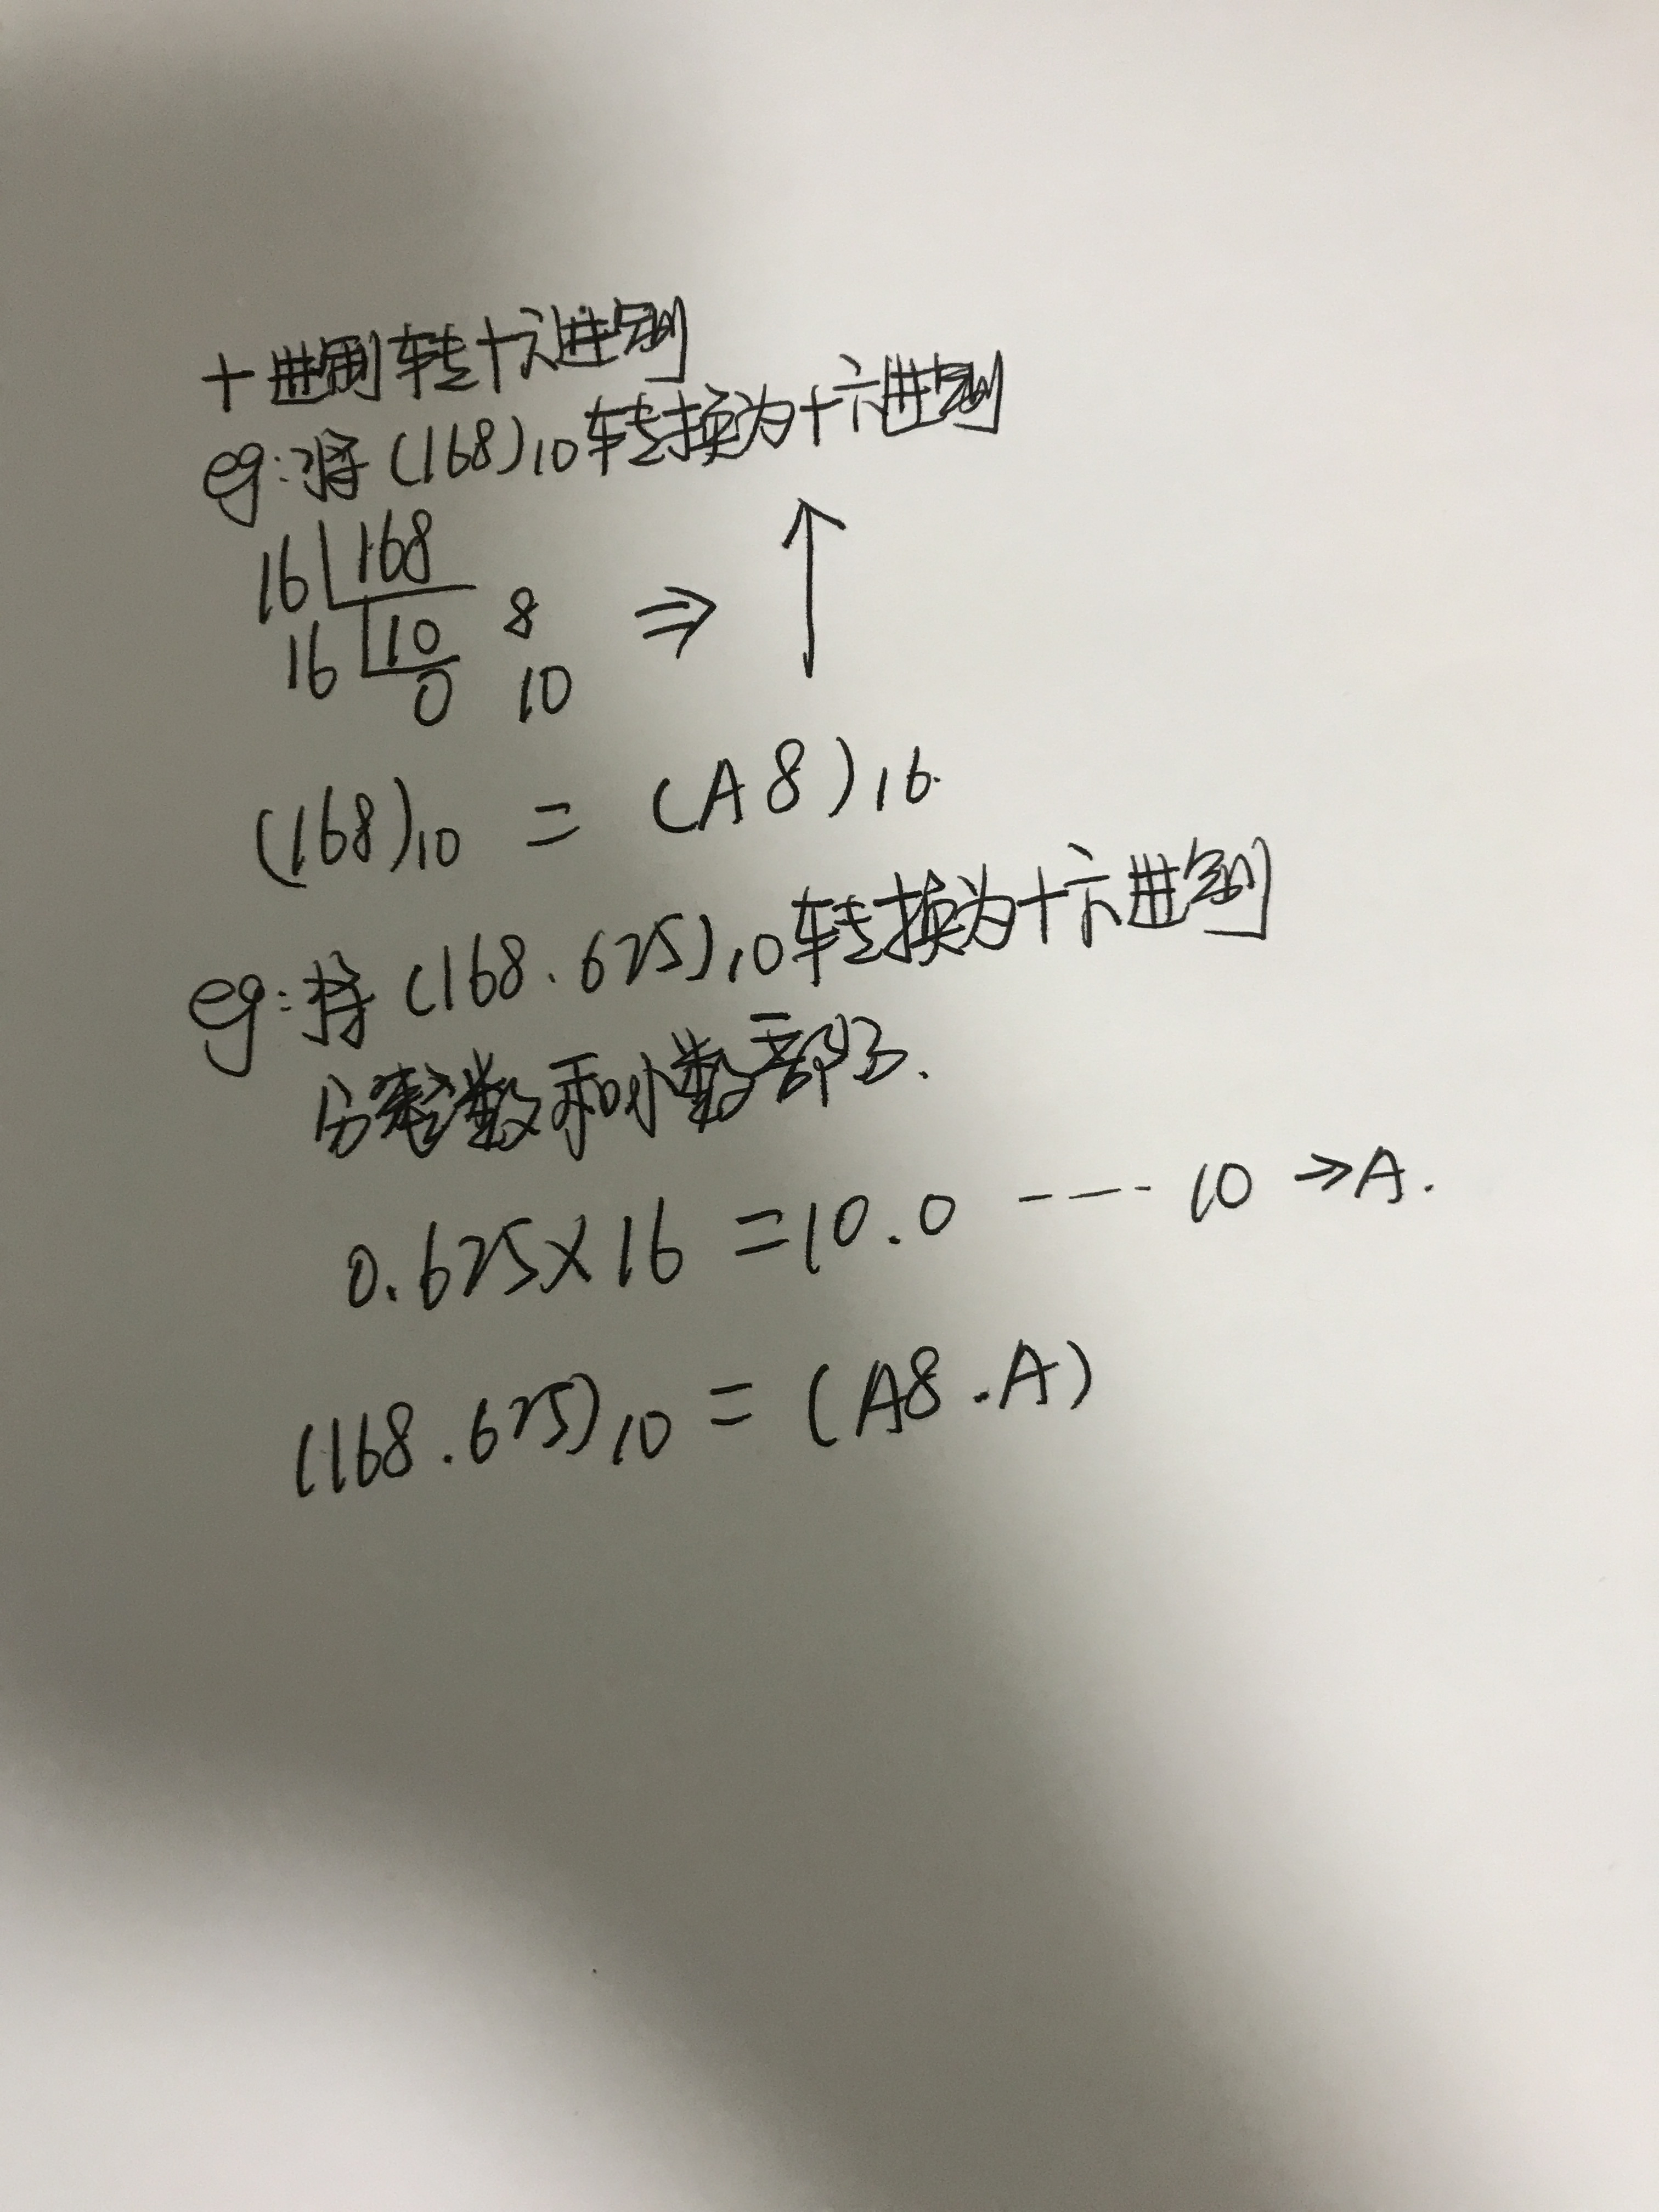 十进制转十六进制
eg:将(168)10转换为十六进制
16 168
16 10 8 ⇒ ↑
0 10
(168)10 = (A8)16.
eg:将(168.625)10转换为十六进制
分整数和小数部分.
0.625×16 =10.0 ---- 10 ⇒A.
(168.625)10 = (A8.A)